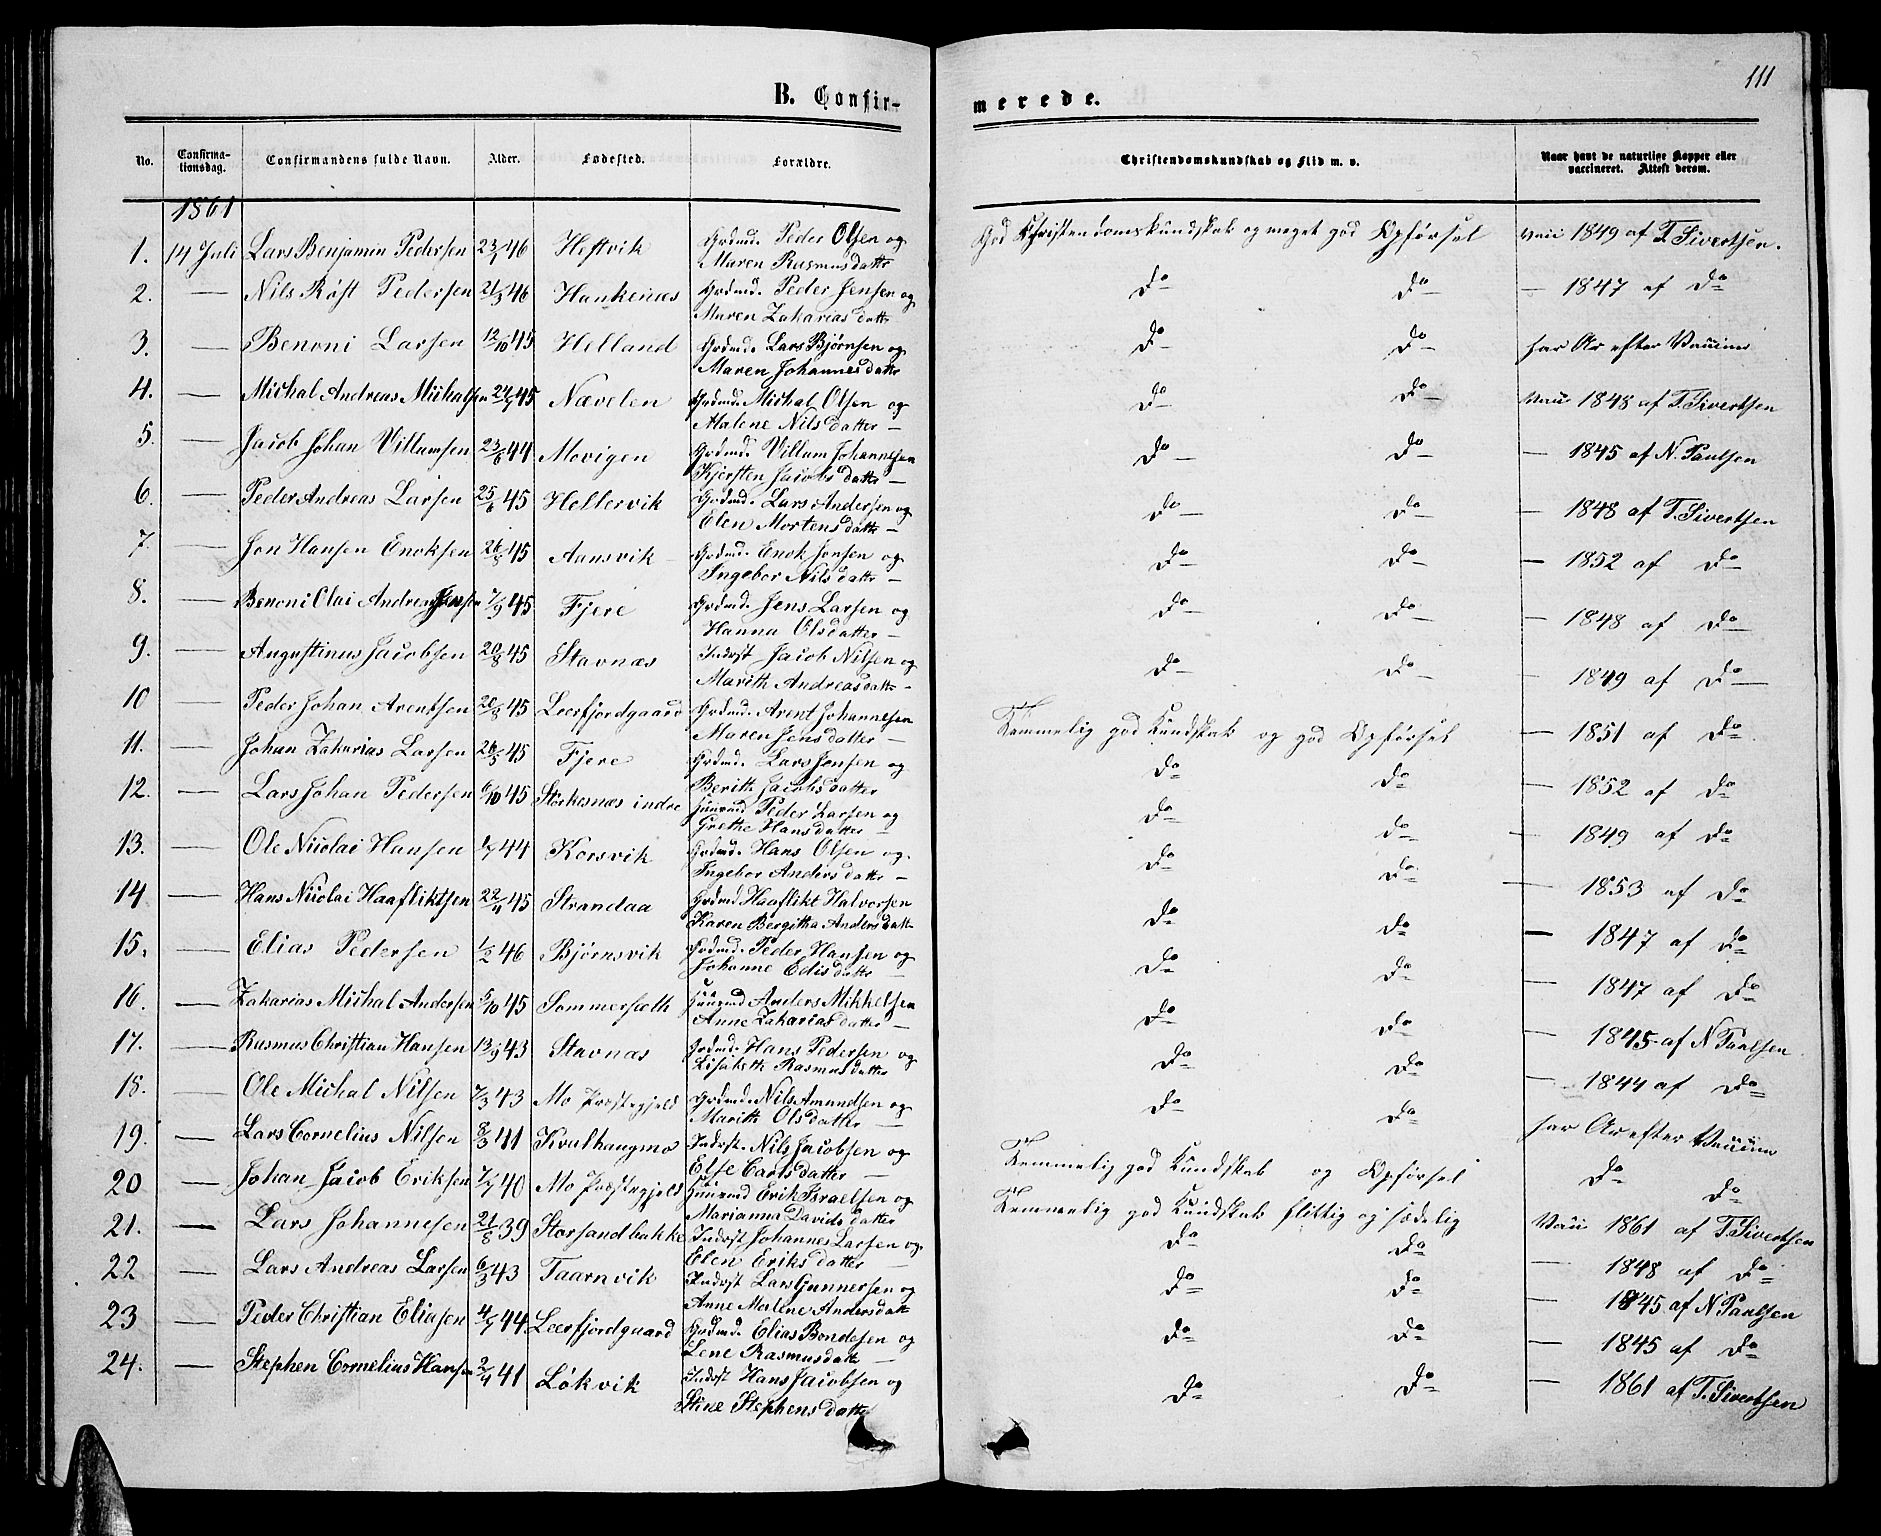 111
B. Confirmerede.
No. Confirmationsdag. Confirmandens fulde Navn. Alder. Fødested. Forældre. Christendomskundskab og Flid m. v. Naar havt de naturlige Kopper eller vaccineret. Attest derom.
1861
1. 14 Juli Lars Benjamin Pedersen 46 Heftvik Grdmd. Peder Olsen og Maren Rasmusdatter God Christendomskundskab og meget god Opførsel Vacc 1849 af T. Sivertsen.
2. — Nils Røst Pedersen 21/3 46 Haukenæs Grdmd. Peder Jensen og Maren Zakariasdattr Do — Do — — 1847 af Do
3. — Benoni Larsen 12/10 45 Helland Grdmd. Lars Bjørnsen og Maren Johannesdattr Do — Do — har Ar efter Vaccine
4. — Michal Andreas Michalsen 45 Nævelen Grdmd. Michal Olsen og Malene Nilsdatter — Do — Do — Vacc 1848 af T. Sivertsen
5. — Jacob Johan Villumsen 23/6 44 Movigen Grdmd. Villum Johannesen Kjersten Jacobsdattr — Do — Do — — 1845 af N. Paulsen
6. — Peder Andreas Larsen 25/6 45 Hellervik Grdmd. Lars Andersen og Elen Mortensdattr — Do — Do — — 1848 af T. Sivertsen
7. — Jon Hansen Enoksen 26/8 45 Aansvik Grdmd. Enok Jonsen og Ingebor Nilsdattr — Do — Do — — 1852 af Do
8. — Benoni Olai Andreas Jensen 7/9 45 Fjere Grdmd. Jens Larsen og Hanna Olsdatter — Do — Do — — 1848 af Do
9. — Augustinus Jacobsen 20/8 45 Stavnæs Inderst Jacob Nilsen og Marith Andreasdattr — Do — Do — — 1849 af Do
10 — Peder Johan Arentsen 20/8 45 Leerfjordgaard Grdmd. Arent Johannesen Maren Jensdatter — Temmelig god Kundskab og god Opførsel — 1851 af Do
11. — Johan Zakarias Larsen 26/5 45 Fjere Grdmd. Lars Jonsen og Berith Jacobsdatter Do Do — 1852 af Do
12. — Lars Johan Pedersen 6/10 45 Storkesnæs indre Huusmd Peder Larsen og Grethe Hansdatter — Do Do — 1849 af Do
13. — Ole Nicolai Hansen 44 Korsvik Grdmd. Hans Olsen og Ingebor Andersdattr — Do Do — 1853 af Do
14 — Hans Nicolai Haafliktsen 22/4 45 Strandaa Grdmd Haaflikt Halvorsen Karen Bergitha Andersdatt Do Do — 1847 af Do
15. — Elias Pedersen 1/2 46 Bjørnsvik Grdmd. Peder Hansen og Johanne Edisdattr — Do Do — 1847 af Do
16. — Zakarias Michal Andersen 5/10 45 Sommersæth Huusmd Anders Mikkelsen Anne Zakariasdatter — Do Do — 1845 af N Paulsen
17. — Rasmus Christian Hansen 13/9 43 Stavnæs Grdmd. Hans Pedersen og Lisabeth Rasmusdatter Do Do — 1844 af Do
18. — Ole Michal Nilsen 7/3 43 Mo Præstegjeld Grdmd. Nils Amundsen og Marith Olsdatter — Do Do har Ar efter Vaccine
19. — Lars Cornelius Nilsen 8/3 41 Kvalhaugmo Inderst. Nils Jacobsen og Else Carlsdatter — Temmelig god Kundskab og Opførsel Do Do
20 — Johan Jacob Eriksen 40 Mo Præstegjeld Huusmd Erik Israelsen og Marianna Davidsdatter Temmelig god Kundskab flittig og sædelig Vacc 1861 af T. Sivertsen
21. — Lars Johannesen 21/8 39 Storsandbakke Inderst Johannes Larsen og Elen Eriksdatter — Do Do — 1848 af Do
22 — Lars Andreas Larsen 6/3 43 Taarnvik Inderst Lars Gunnersen og Anne Malene Andersdatt Do Do — 1845 af N Paulsen
23 — Peder Christian Eliasen 44 Leerfjordgaard Grdmd. Elias Bondesen og Lene Rasmusdattr — Do Do — 1845 af Do
24. — Stephen Cornelius Hansen 2/4 41 Løkvik Inderst Hans Jacobsen og Stine Stephensdatter Do Do — 1861 af T. Sivertsen